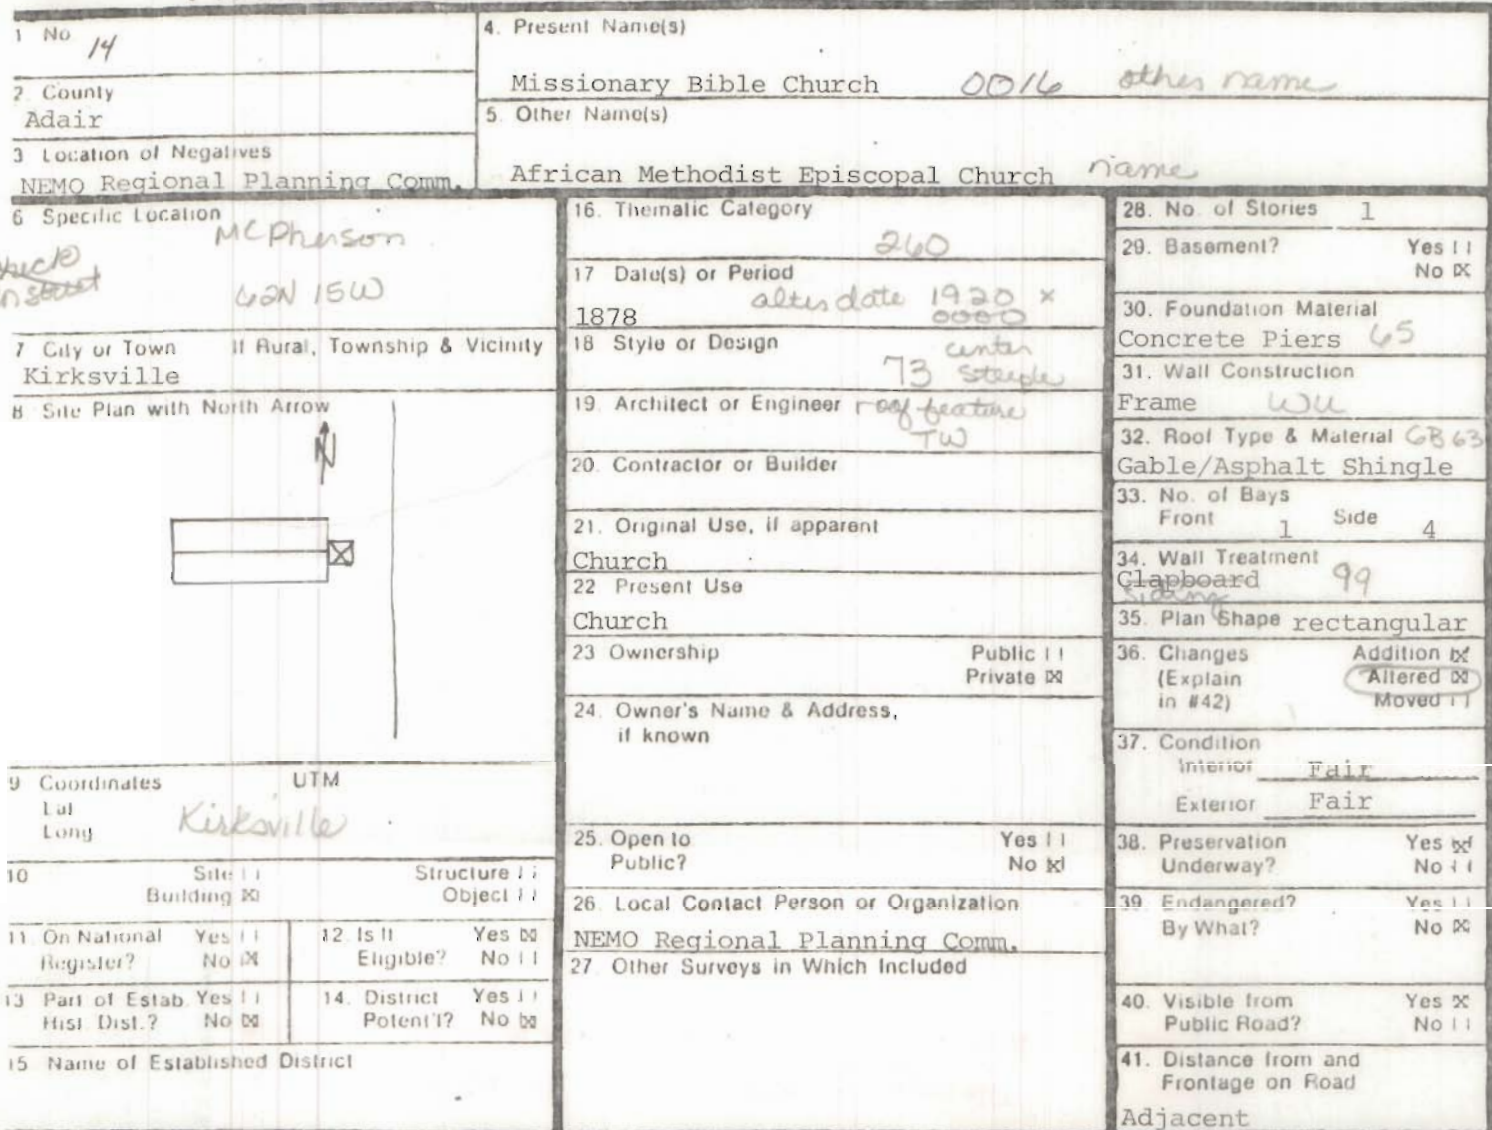 1 No 14
2. County
Adair
3 Location of Negatives
NEMO Regional Planning Comm.
4. Present Name(s)
Missionary Bible Church 0016 other name
5. Other Name(s)
African Methodist Episcopal Church name
6 Specific Location
McPherson
62N 15W
7 City or Town If Rural, Township & Vicinity
Kirksville
8 Site Plan with North Arrow
N
9 Coordinates UTM
Lat
Long
Kirksville
10 Site [ ] Structure [ ]
Building [X] Object [ ]
11. On National Yes [ ]
Register? No [X]
12. Is It Yes [X]
Eligible? No [ ]
13 Part of Estab. Yes [ ]
Hist. Dist.? No [X]
14. District Yes [ ]
Potent'l? No [X]
15 Name of Established District
16. Thematic Category
260
17 Date(s) or Period
alter date 1920 x
1878 0000
18 Style or Design center
73 steeple
19. Architect or Engineer roof feature
TW
20. Contractor or Builder
21. Original Use, if apparent
Church
22 Present Use
Church
23 Ownership Public [ ]
Private [X]
24. Owner's Name & Address,
if known
25. Open to Yes [ ]
Public? No [X]
26. Local Contact Person or Organization
NEMO Regional Planning Comm.
27 Other Surveys in Which Included
28. No. of Stories 1
29. Basement? Yes [ ]
No [X]
30. Foundation Material
Concrete Piers 65
31. Wall Construction
Frame WU
32. Roof Type & Material GB 63
Gable/Asphalt Shingle
33. No. of Bays
Front 1 Side 4
34. Wall Treatment
Clapboard 99
siding
35. Plan Shape rectangular
36. Changes Addition [X]
(Explain Altered [X]
in #42) Moved [ ]
37. Condition
Interior Fair
Exterior Fair
38. Preservation Yes [X]
Underway? No [ ]
39. Endangered? Yes [ ]
By What? No [X]
40. Visible from Yes X
Public Road? No [ ]
41. Distance from and
Frontage on Road
Adjacent